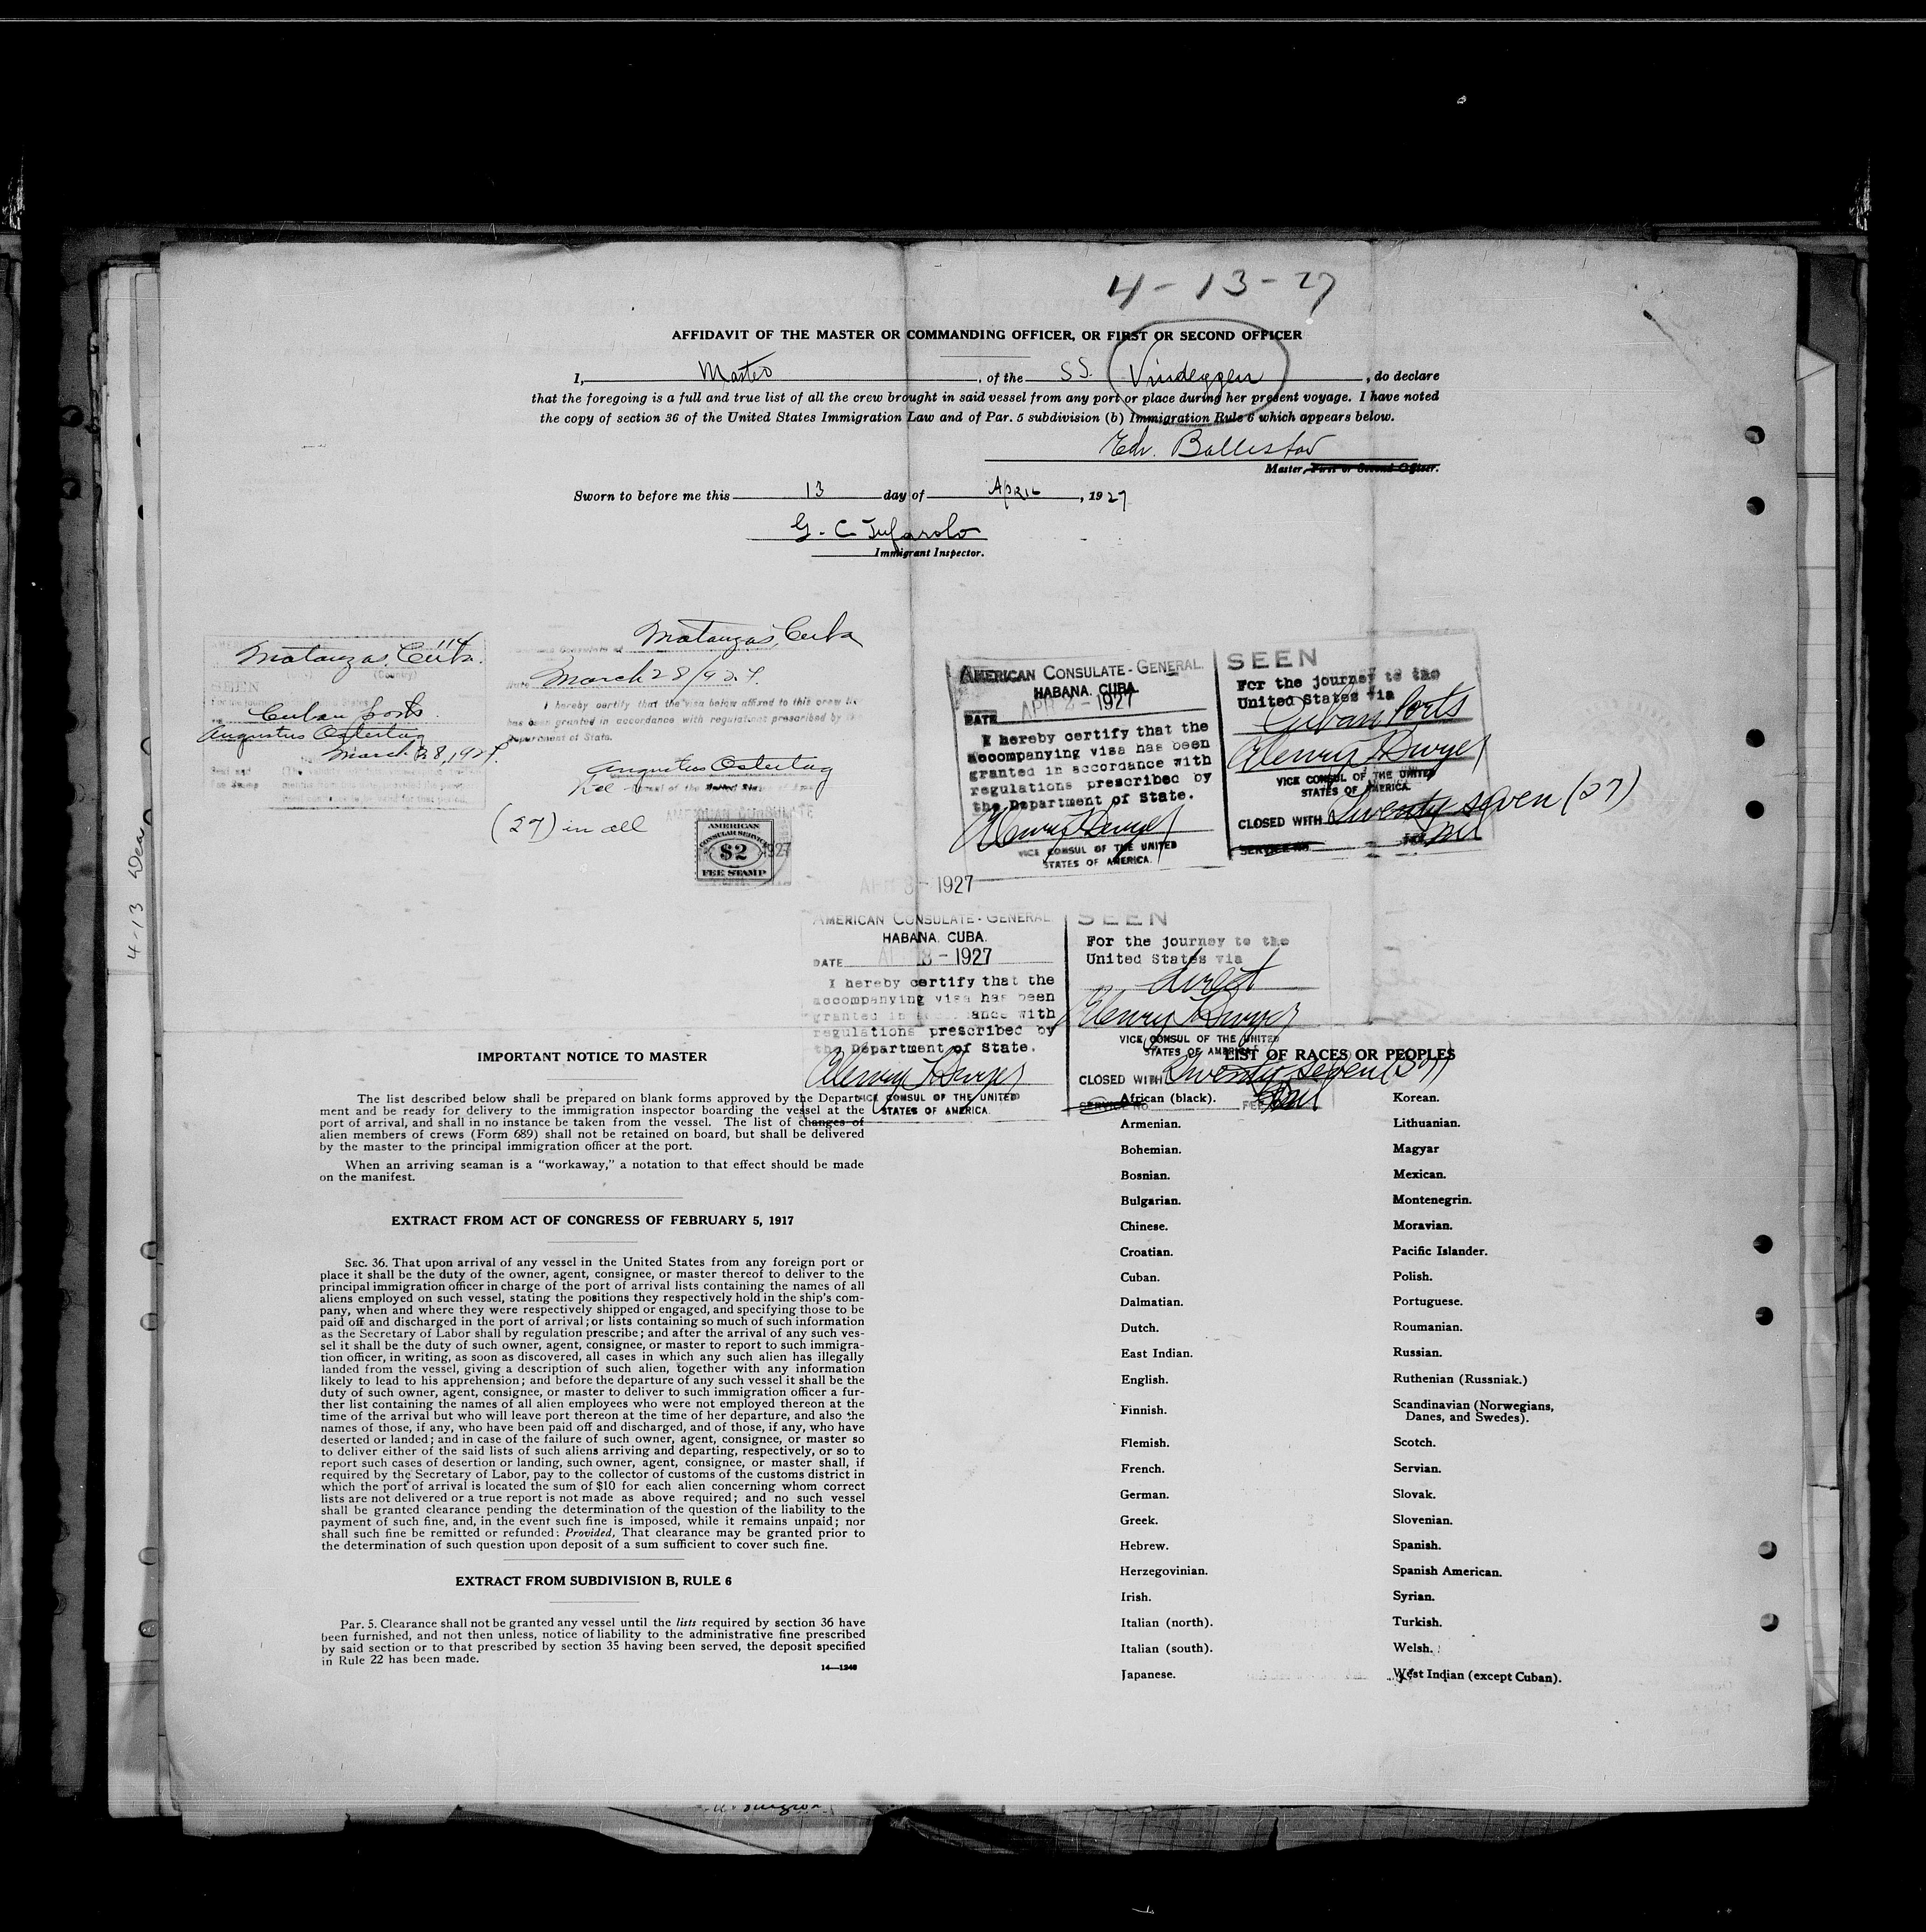 4-13-27
AFFIDAVIT OF THE MASTER OR COMMANDING OFFICER, OR FIRST OR SECOND OFFICER
I, Master, of the SS. Vindeggen, do declare
that the foregoing is a full and true list of all the crew brought in said vessel from any port or place during her present voyage. I have noted
the copy of section 36 of the United States Immigration Law and of Par. 5 subdivision (b) Immigration Rule 6 which appears below.
Edv. Ballestad
Master, First or Second Officer.
Sworn to before me this 13 day of April, 1927
G. C. Tufarolo
Immigrant Inspector.
Matanzas, Cuba.
(City) (Country)
SEEN
Cuban ports.
Augustus Ostertag
March 28, 1927.
Matanzas, Cuba
March 28/927.
I hereby certify that the visa below affixed to this crew list
has been granted in accordance with regulations prescribed by the
Department of State.
Augustus Ostertag
(27) in all
AMERICAN
CONSULAR SERVICE
$2
FEE STAMP
1927
AMERICAN CONSULATE-GENERAL.
HABANA, CUBA.
DATE APR 4-1927
I hereby certify that the
accompanying visa has been
granted in accordance with
regulations prescribed by
the Department of State.
Henry T. Dwyer
VICE CONSUL OF THE UNITED
STATES OF AMERICA.
SEEN
For the journey to the
United States via
Cuban Ports
Henry T. Dwyer
VICE CONSUL OF THE UNITED
STATES OF AMERICA.
CLOSED WITH Twenty seven (27)
SERVICE NO. FEE nil
4-13 Dea
APR 8-1927
AMERICAN CONSULATE-GENERAL.
HABANA, CUBA.
DATE APR 8-1927
I hereby certify that the
accompanying visa has been
granted in accordance with
regulations prescribed by
the Department of State.
Henry T. Dwyer
VICE CONSUL OF THE UNITED
STATES OF AMERICA.
SEEN
For the journey to the
United States via
direct
Henry T. Dwyer
VICE CONSUL OF THE UNITED
STATES OF AMERICA.
CLOSED WITH Twenty seven (27)
SERVICE NO. FEE nil
IMPORTANT NOTICE TO MASTER
The list described below shall be prepared on blank forms approved by the Depart-
ment and be ready for delivery to the immigration inspector boarding the vessel at the
port of arrival, and shall in no instance be taken from the vessel. The list of changes of
alien members of crews (Form 689) shall not be retained on board, but shall be delivered
by the master to the principal immigration officer at the port.
When an arriving seaman is a “workaway,” a notation to that effect should be made
on the manifest.
EXTRACT FROM ACT OF CONGRESS OF FEBRUARY 5, 1917
SEC. 36. That upon arrival of any vessel in the United States from any foreign port or
place it shall be the duty of the owner, agent, consignee, or master thereof to deliver to the
principal immigration officer in charge of the port of arrival lists containing the names of all
aliens employed on such vessel, stating the positions they respectively hold in the ship's com-
pany, when and where they were respectively shipped or engaged, and specifying those to be
paid off and discharged in the port of arrival; or lists containing so much of such information
as the Secretary of Labor shall by regulation prescribe; and after the arrival of any such ves-
sel it shall be the duty of such owner, agent, consignee, or master to report to such immigra-
tion officer, in writing, as soon as discovered, all cases in which any such alien has illegally
landed from the vessel, giving a description of such alien, together with any information
likely to lead to his apprehension; and before the departure of any such vessel it shall be the
duty of such owner, agent, consignee, or master to deliver to such immigration officer a fur-
ther list containing the names of all alien employees who were not employed thereon at the
time of the arrival but who will leave port thereon at the time of her departure, and also the
names of those, if any, who have been paid off and discharged, and of those, if any, who have
deserted or landed; and in case of the failure of such owner, agent, consignee, or master so
to deliver either of the said lists of such aliens arriving and departing, respectively, or so to
report such cases of desertion or landing, such owner, agent, consignee, or master shall, if
required by the Secretary of Labor, pay to the collector of customs of the customs district in
which the port of arrival is located the sum of $10 for each alien concerning whom correct
lists are not delivered or a true report is not made as above required; and no such vessel
shall be granted clearance pending the determination of the question of the liability to the
payment of such fine, and, in the event such fine is imposed, while it remains unpaid; nor
shall such fine be remitted or refunded: Provided, That clearance may be granted prior to
the determination of such question upon deposit of a sum sufficient to cover such fine.
EXTRACT FROM SUBDIVISION B, RULE 6
Par. 5. Clearance shall not be granted any vessel until the lists required by section 36 have
been furnished, and not then unless, notice of liability to the administrative fine prescribed
by said section or to that prescribed by section 35 having been served, the deposit specified
in Rule 22 has been made.
14—1240
LIST OF RACES OR PEOPLES
African (black).
Armenian.
Bohemian.
Bosnian.
Bulgarian.
Chinese.
Croatian.
Cuban.
Dalmatian.
Dutch.
East Indian.
English.
Finnish.
Flemish.
French.
German.
Greek.
Hebrew.
Herzegovinian.
Irish.
Italian (north).
Italian (south).
Japanese.
Korean.
Lithuanian.
Magyar
Mexican.
Montenegrin.
Moravian.
Pacific Islander.
Polish.
Portuguese.
Roumanian.
Russian.
Ruthenian (Russniak.)
Scandinavian (Norwegians,
Danes, and Swedes).
Scotch.
Servian.
Slovak.
Slovenian.
Spanish.
Spanish American.
Syrian.
Turkish.
Welsh.
West Indian (except Cuban).